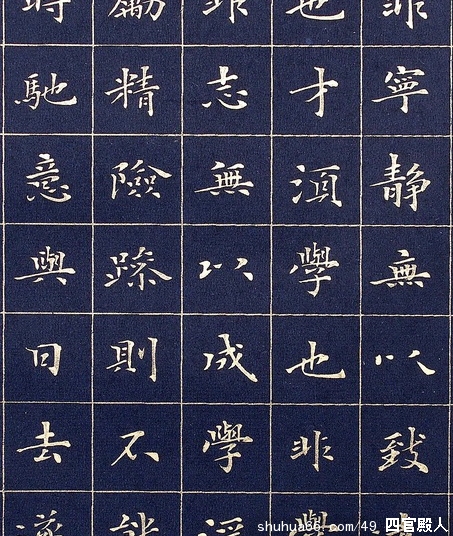 非寧靜無以致
也才須學也非學
非志無以成學淫
勵精險躁則不能
時馳意與日去遂
shuhua66.com/49 四官殿人